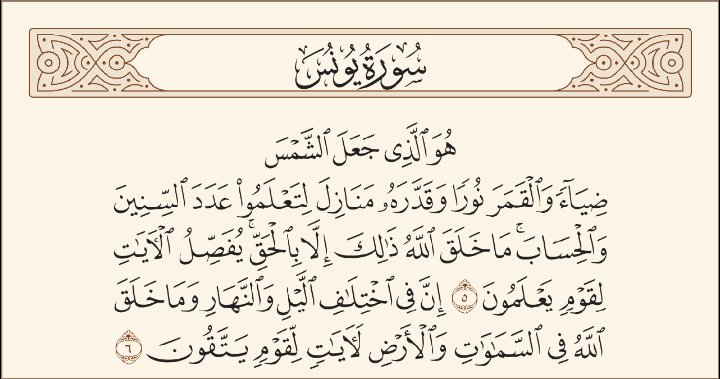 سُورَةُ يُونُسَ
هُوَ ٱلَّذِي جَعَلَ ٱلشَّمۡسَ
ضِيَآءٗ وَٱلۡقَمَرَ نُورٗا وَقَدَّرَهُۥ مَنَازِلَ لِتَعۡلَمُواْ عَدَدَ ٱلسِّنِينَ
وَٱلۡحِسَابَۚ مَا خَلَقَ ٱللَّهُ ذَٰلِكَ إِلَّا بِٱلۡحَقِّۚ يُفَصِّلُ ٱلۡأٓيَٰتِ
لِقَوۡمٖ يَعۡلَمُونَ ٥ إِنَّ فِي ٱخۡتِلَٰفِ ٱلَّيۡلِ وَٱلنَّهَارِ وَمَا خَلَقَ
ٱللَّهُ فِي ٱلسَّمَٰوَٰتِ وَٱلۡأَرۡضِ لَأٓيَٰتٖ لِّقَوۡمٖ يَتَّقُونَ ٦